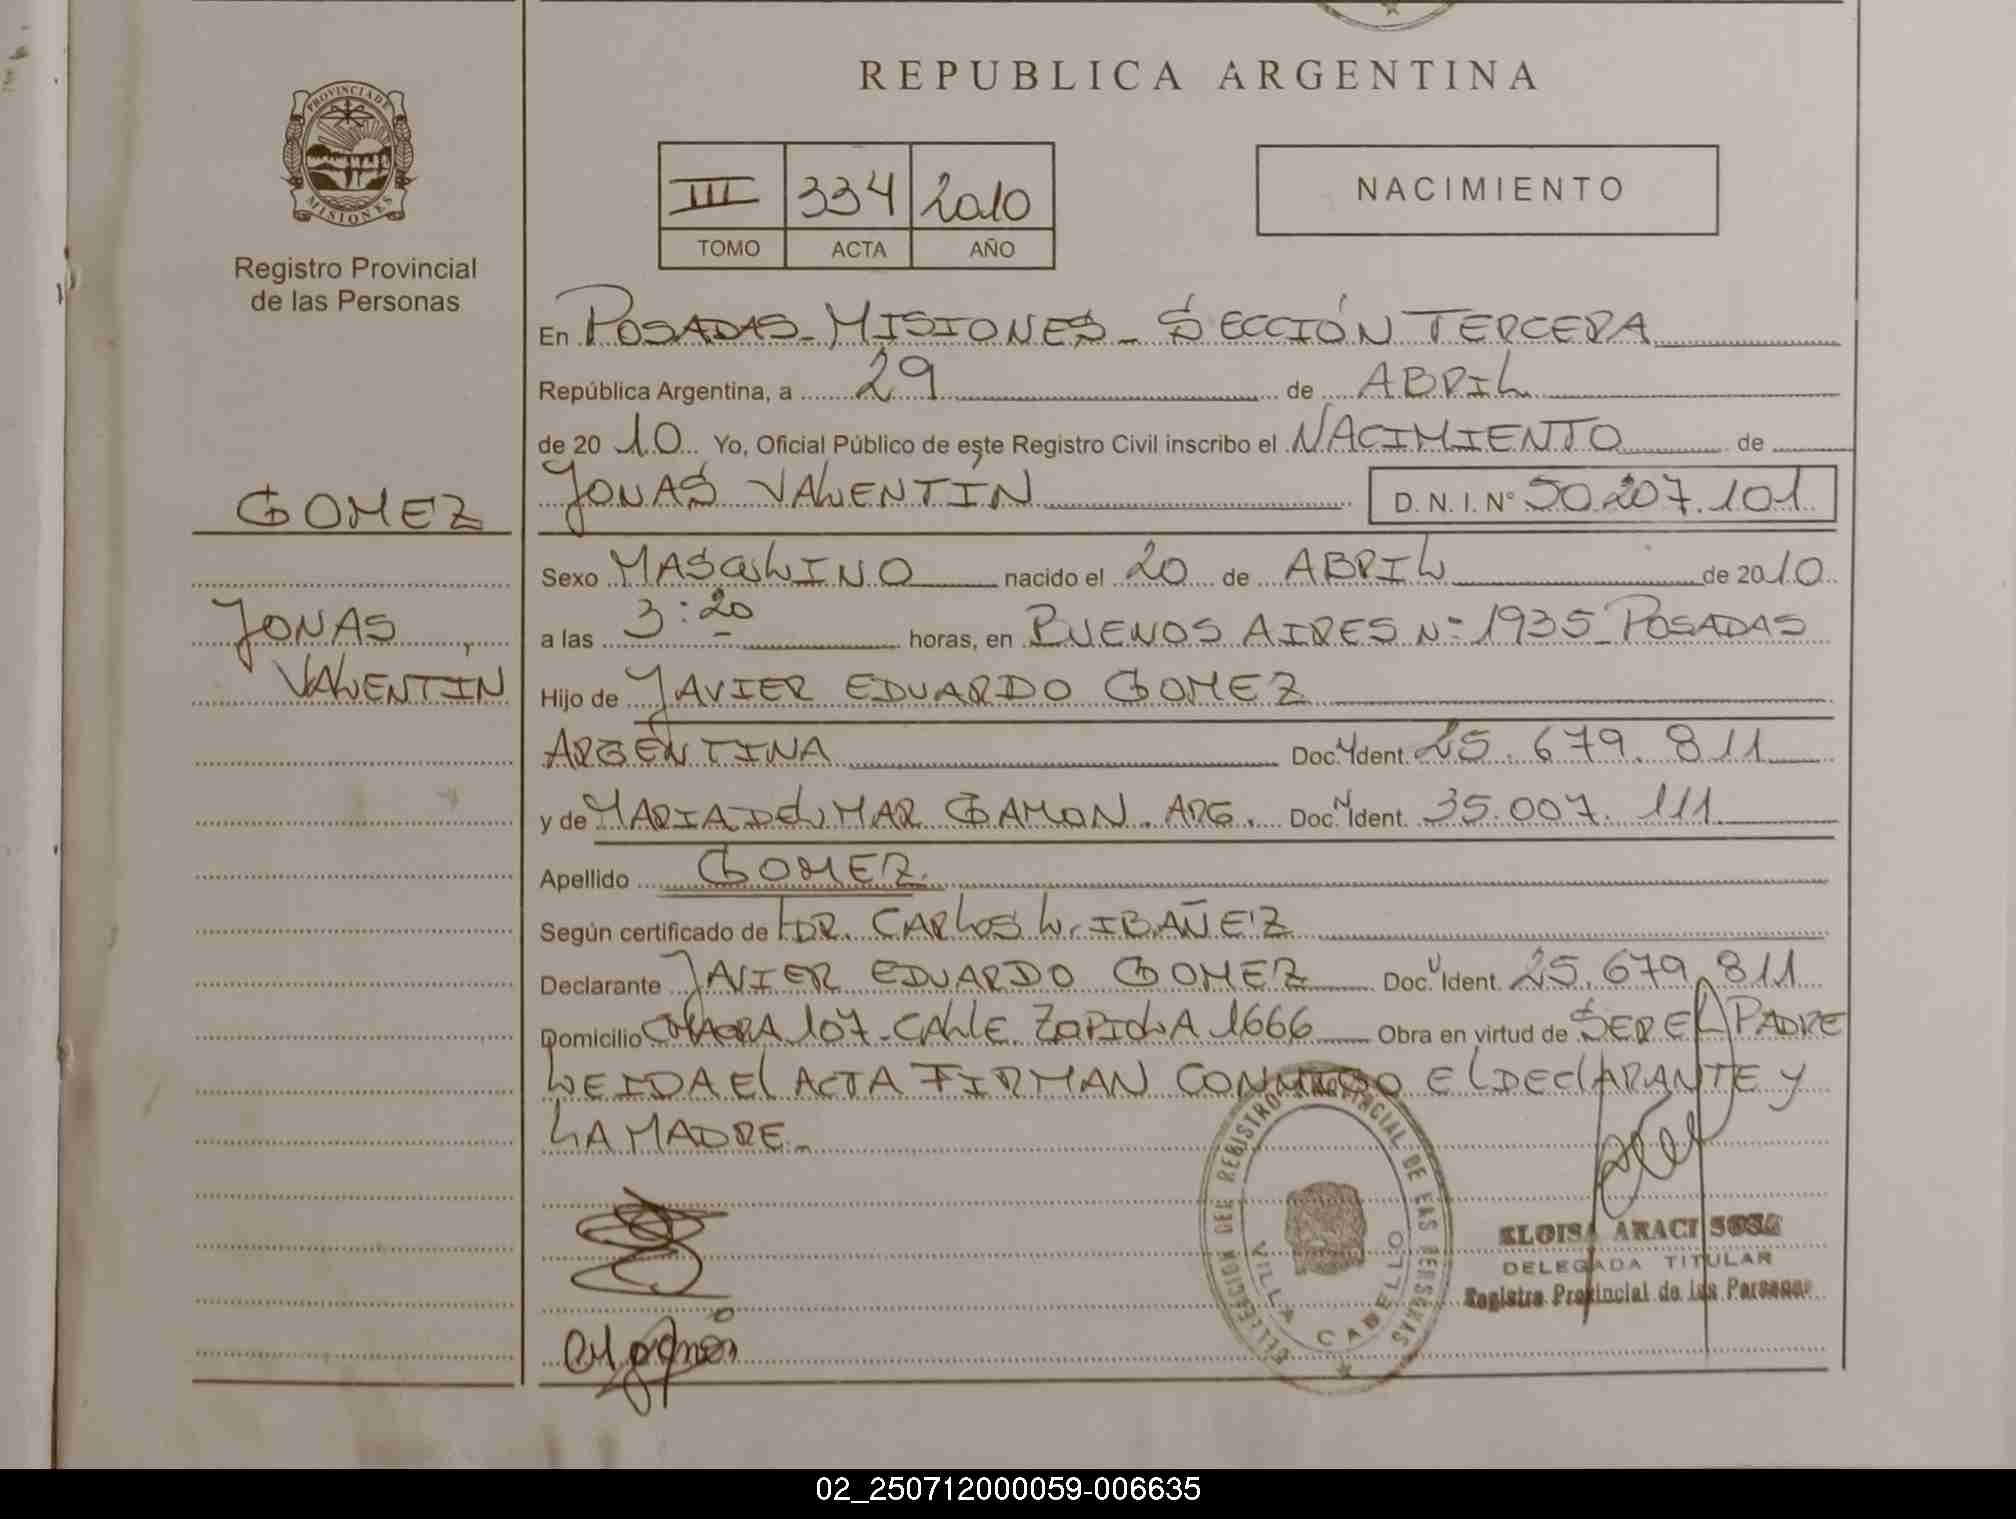 REPUBLICA ARGENTINA
PROVINCIA DE
MISIONES
Registro Provincial
de las Personas
III 334 2010
TOMO ACTA AÑO
NACIMIENTO
En POSADAS-MISIONES- SECCIÓN TERCERA
República Argentina, a 29 de ABRIL
de 20 10 Yo, Oficial Público de este Registro Civil inscribo el NACIMIENTO de
GOMEZ
JONAS VALENTÍN D. N. I. Nº 50.207.101
Sexo MASCULINO nacido el 20 de ABRIL de 2010
JONAS
a las 3:20 horas, en BUENOS AIRES Nº 1935-POSADAS
VALENTÍN
Hijo de JAVIER EDUARDO GOMEZ
ARGENTINA Doc. Ident. 25.679.811
y de MARIA DEL MAR GAMON. ARG. Doc. Ident. 35.007.111
Apellido GOMEZ.
Según certificado de DR. CARLOS L. IBAÑEZ
Declarante JAVIER EDUARDO GOMEZ Doc. Ident. 25.679.811
Domicilio CHACRA 107-CALLE ZAPIOLA 1666 Obra en virtud de SER EL PADRE
LEIDA EL ACTA FIRMAN CONMIGO EL DECLARANTE Y
LA MADRE.-
DELEGACION DEL REGISTRO PROVINCIAL DE LAS PERSONAS
VILLA CABELLO
ELOISA ARACI SOSA
DELEGADA TITULAR
Registro Provincial de las Personas
02_250712000059-006635